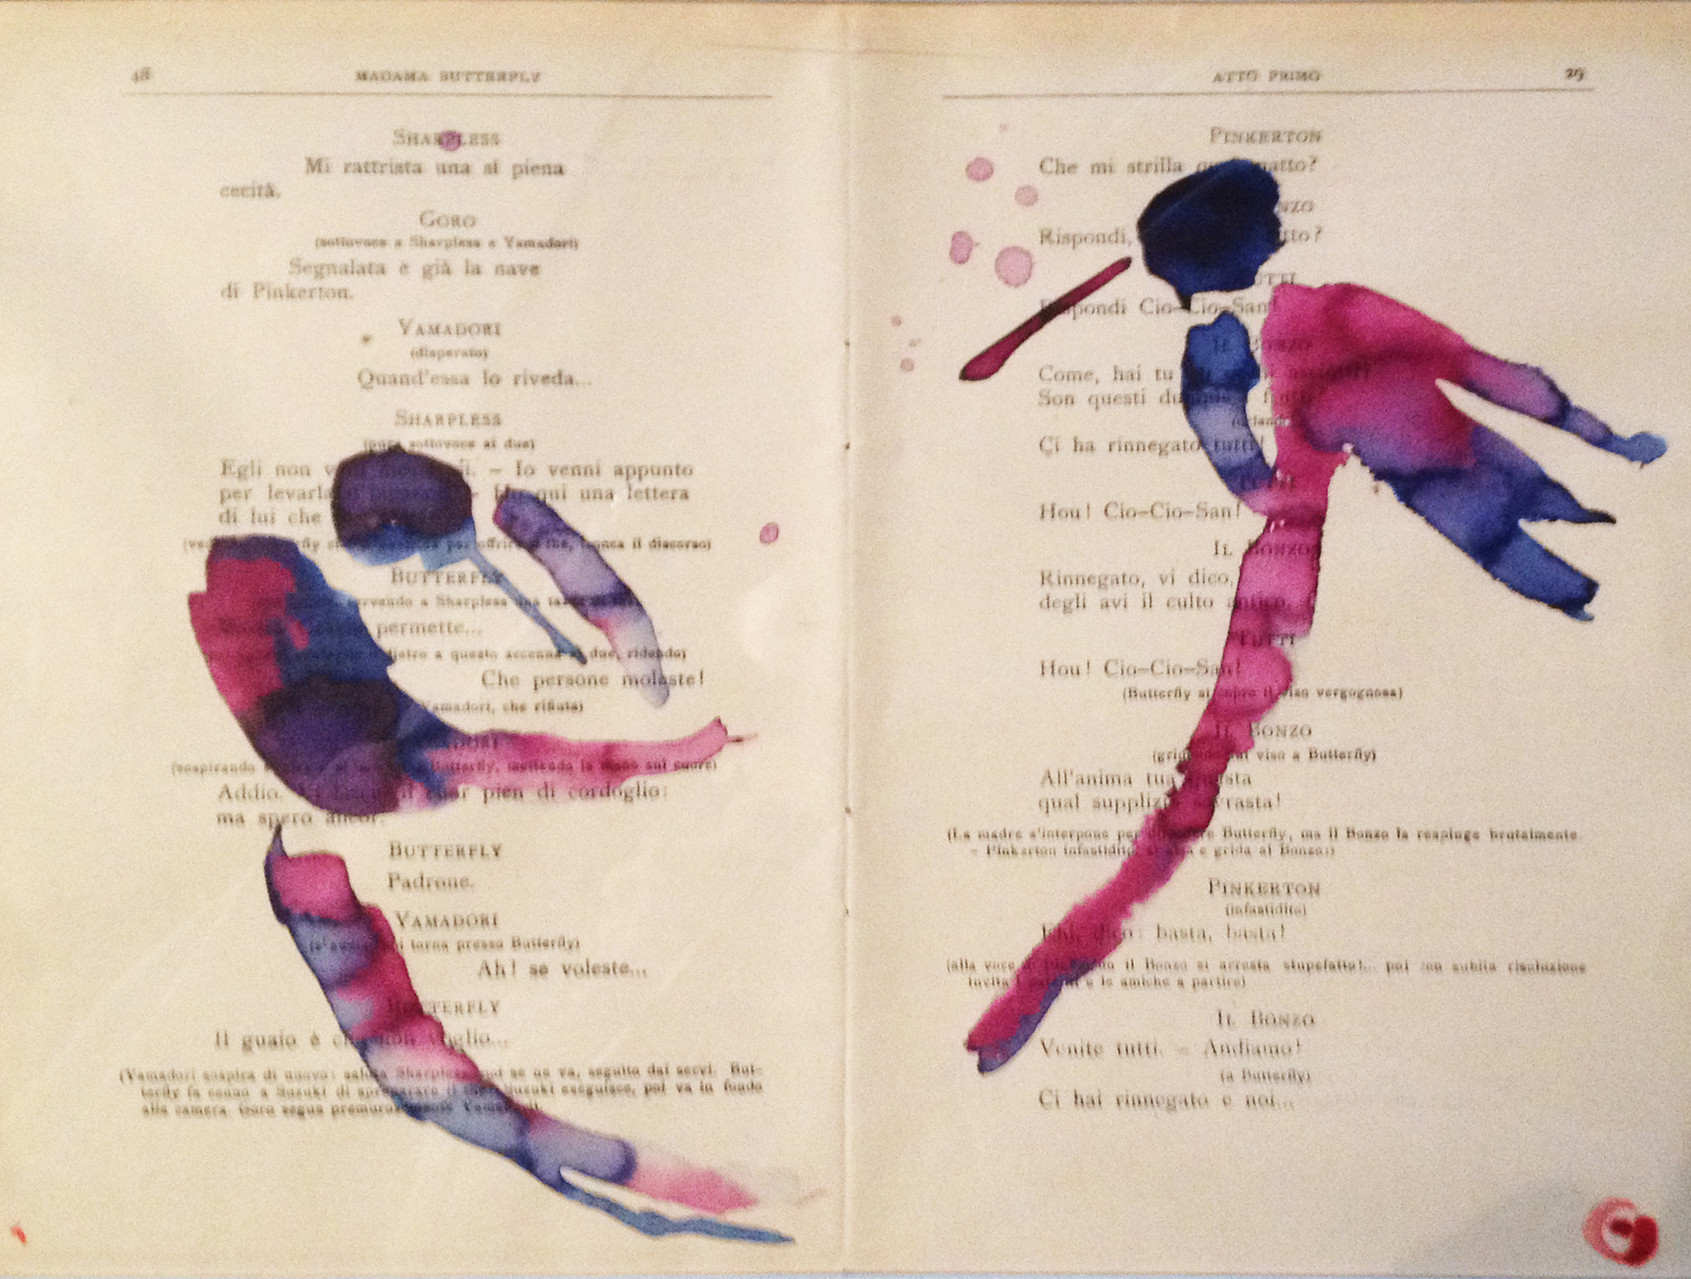 48 MADAMA BUTTERFLY
SHARPLESS
Mi rattrista una sì piena
cecità.
GORO
(sottovoce a Sharpless e Yamadori)
Segnalata è già la nave
di Pinkerton.
YAMADORI
(disperato)
Quand'essa lo riveda...
SHARPLESS
(pure sottovoce ai due)
Egli non – Io venni appunto
per – qui una lettera
di lui che
offrire il the, tronca il discorso)
BUTTERFLY
servendo a Sharpless una
permette...
dietro a questo accenna ai due, ridendo)
Che persone moleste!
Yamadori, che rifiuta)
YAMADORI
(sospirando Butterfly, mettendo la mano sul cuore)
Addio. cuor pien di cordoglio:
ma spero ancor.
BUTTERFLY
Padrone.
YAMADORI
torna presso Butterfly)
Ah! se voleste...
BUTTERFLY
Il guaio è che non voglio...
(Yamadori sospira di nuovo: saluta Sharpless, poi se ne va, seguito dai servi. But-
terfly fa cenno a Suzuki di Suzuki eseguisce, poi va in fondo
alla camera. Goro segue premurosamente Yamadori).
ATTO PRIMO 29
PINKERTON
Che mi strilla matto?
BONZO
Rispondi,
TUTTI
Rispondi Cio-Cio-San!
IL BONZO
Come, hai tu
Son questi dunque
Ci ha rinnegato tutti!
TUTTI
Hou! Cio-Cio-San!
IL BONZO
Rinnegato, vi dico,
degli avi il culto antico.
TUTTI
Hou! Cio-Cio-San!
(Butterfly si copre il viso vergognosa)
IL BONZO
(gridando sul viso a Butterfly)
All'anima tua guasta
qual supplizio sovrasta!
(La madre s'interpone per difendere Butterfly, ma il Bonzo la respinge brutalmente
– Pinkerton infastidito si alza e grida al Bonzo:)
PINKERTON
(infastidito)
Ehi, dico: basta, basta!
(alla voce di Pinkerton il Bonzo si arresta stupefatto!... poi con subita risoluzione
invita i parenti e le amiche a partire)
IL BONZO
Venite tutti. – Andiamo!
(a Butterfly)
Ci hai rinnegato e noi...